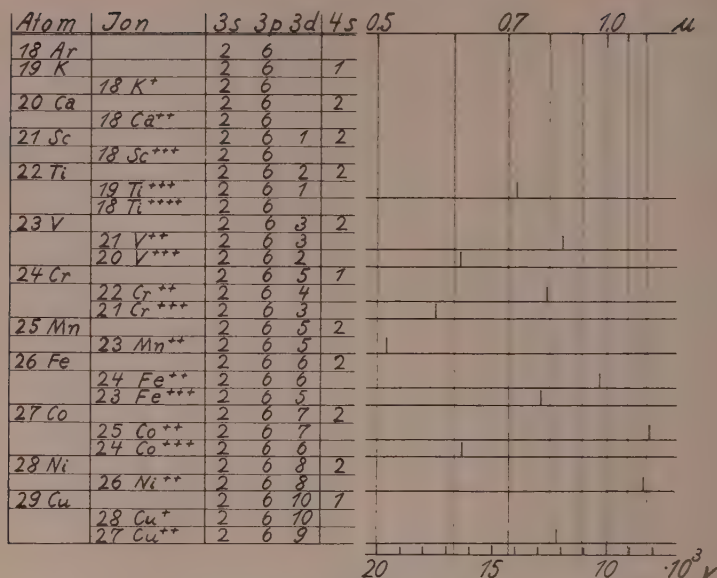 Atom Jon 3s 3p 3d 4s 0.5 0.7 1.0 μ
18 Ar 2 6
19 K 2 6 1
18 K⁺ 2 6
20 Ca 2 6 2
18 Ca⁺⁺ 2 6
21 Sc 2 6 1 2
18 Sc⁺⁺⁺ 2 6
22 Ti 2 6 2 2
19 Ti⁺⁺⁺ 2 6 1
18 Ti⁺⁺⁺⁺ 2 6
23 V 2 6 3 2
21 V⁺⁺ 2 6 3
20 V⁺⁺⁺ 2 6 2
24 Cr 2 6 5 1
22 Cr⁺⁺ 2 6 4
21 Cr⁺⁺⁺ 2 6 3
25 Mn 2 6 5 2
23 Mn⁺⁺ 2 6 5
26 Fe 2 6 6 2
24 Fe⁺⁺ 2 6 6
23 Fe⁺⁺⁺ 2 6 5
27 Co 2 6 7 2
25 Co⁺⁺ 2 6 7
24 Co⁺⁺⁺ 2 6 6
28 Ni 2 6 8 2
26 Ni⁺⁺ 2 6 8
29 Cu 2 6 10 1
28 Cu⁺ 2 6 10
27 Cu⁺⁺ 2 6 9
20 15 10 ·10³ ν